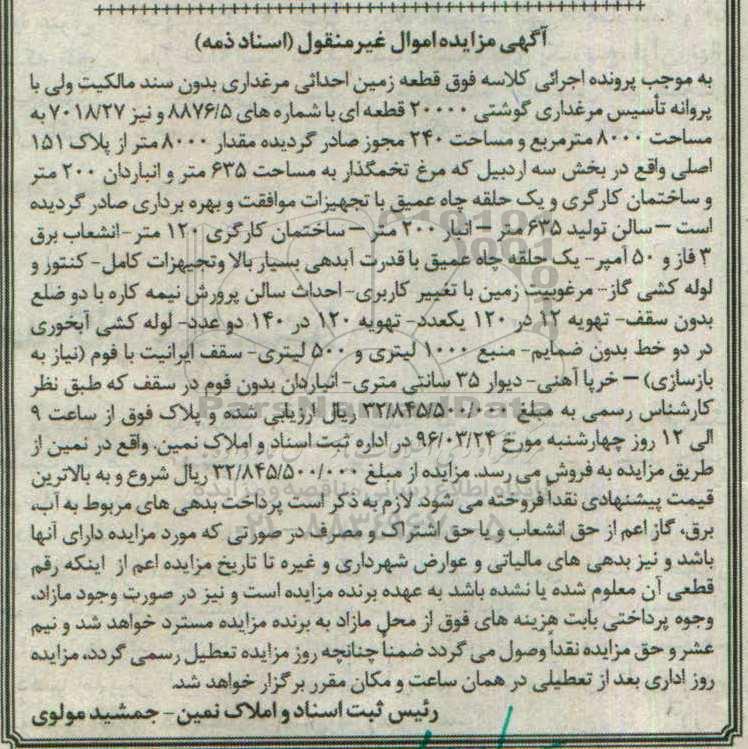 آگهی مزایده اموال غیرمنقول (اسناد ذمه)
به موجب پرونده اجرائی کلاسه فوق قطعه زمین احداثی مرغداری بدون سند مالکیت ولی با
پروانه تأسیس مرغداری گوشتی ۲۰۰۰۰ قطعه ای با شماره های ۸۸۷۶/۵ و نیز ۷۰۱۸/۲۷ به
مساحت ۸۰۰۰ مترمربع و مساحت ۲۴۰ مجوز صادر گردیده مقدار ۸۰۰۰ متر از پلاک ۱۵۱
اصلی واقع در بخش سه اردبیل که مرغ تخمگذار به مساحت ۶۳۵ متر و انباردان ۲۰۰ متر
و ساختمان کارگری و یک حلقه چاه عمیق با تجهیزات موافقت و بهره برداری صادر گردیده
است – سالن تولید ۶۳۵ متر – انبار ۲۰۰ متر – ساختمان کارگری ۱۲۰ متر - انشعاب برق
۳ فاز و ۵۰ آمپر- یک حلقه چاه عمیق با قدرت آبدهی بسیار بالا وتجهیزات کامل- کنتور و
لوله کشی گاز- مرغوبیت زمین با تغییر کاربری- احداث سالن پرورش نیمه کاره با دو ضلع
بدون سقف- تهویه ۱۲ در ۱۲۰ یکعدد- تهویه ۱۲۰ در ۱۴۰ دو عدد- لوله کشی آبخوری
در دو خط بدون ضمایم- منبع ۱۰۰۰ لیتری و ۵۰۰ لیتری- سقف ایرانیت با فوم (نیاز به
بازسازی) – خرپا آهنی- دیوار ۳۵ سانتی متری- انباردان بدون فوم در سقف که طبق نظر
کارشناس رسمی به مبلغ ۳۲/۸۴۵/۵۰۰/۰۰۰ ریال ارزیابی شده و پلاک فوق از ساعت ۹
الی ۱۲ روز چهارشنبه مورخ ۹۶/۰۳/۲۴ در اداره ثبت اسناد و املاک نمین، واقع در نمین از
طریق مزایده به فروش می رسد. مزایده از مبلغ ۳۲/۸۴۵/۵۰۰/۰۰۰ ریال شروع و به بالاترین
قیمت پیشنهادی نقداً فروخته می شود. لازم به ذکر است پرداخت بدهی های مربوط به آب،
برق، گاز اعم از حق انشعاب و یا حق اشتراک و مصرف در صورتی که مورد مزایده دارای آنها
باشد و نیز بدهی های مالیاتی و عوارض شهرداری و غیره تا تاریخ مزایده اعم از اینکه رقم
قطعی آن معلوم شده یا نشده باشد به عهده برنده مزایده است و نیز در صورت وجود مازاد،
وجوه پرداختی بابت هزینه های فوق از محل مازاد به برنده مزایده مسترد خواهد شد و نیم
عشر و حق مزایده نقداً وصول می گردد ضمناً چنانچه روز مزایده تعطیل رسمی گردد، مزایده
روز اداری بعد از تعطیلی در همان ساعت و مکان مقرر برگزار خواهد شد.
رئیس ثبت اسناد و املاک نمین- جمشید مولوی